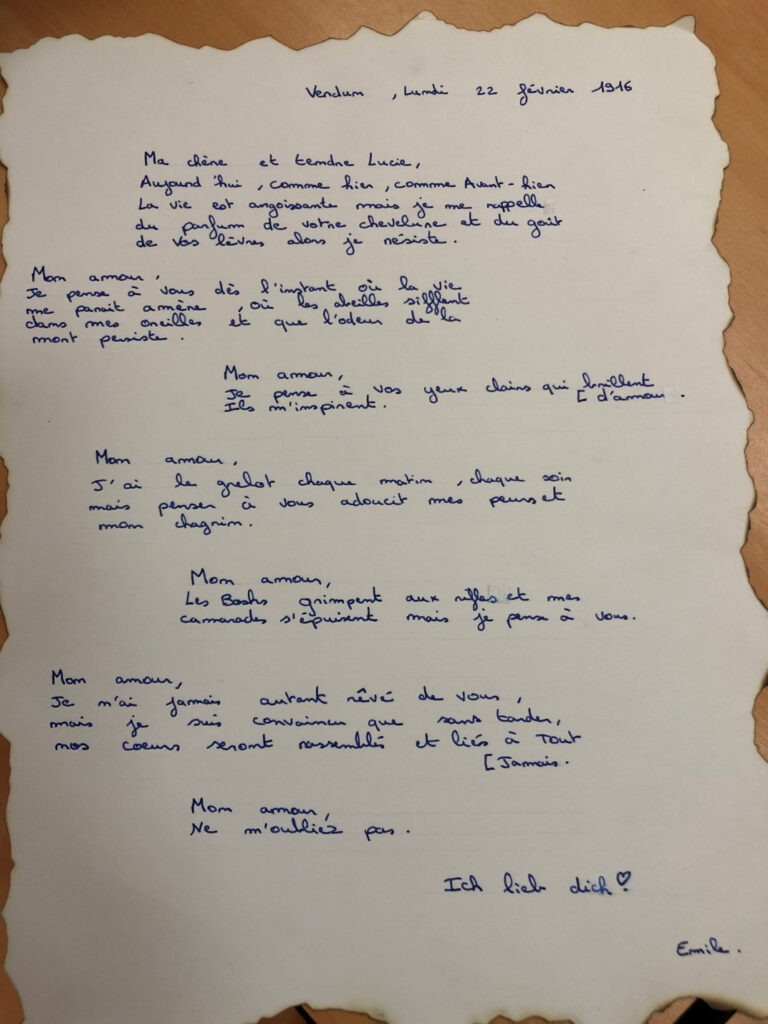 Verdum , Lundi 22 février 1916
Ma chère et tendre Lucie,
Aujourd'hui , comme hier , comme Avant-hier
La vie est angoissante mais je me rappelle
du parfum de votre chevelure et du goût
de vos lèvres alors je résiste .
Mon amour,
Je pense à vous dès l'instant où la vie
me parait amère , où les abeilles sifflent
dans mes oreilles et que l'odeur de la
mort persiste .
Mon amour,
Je pense à vos yeux clairs qui brillent
[ d'amour .
Ils m'inspirent .
Mon amour,
J'ai le grelot chaque matin , chaque soir
mais penser à vous adoucit mes peurs et
mon chagrin .
Mon amour,
Les Boshs grimpent aux rifles et mes
camarades s'épuisent mais je pense à vous .
Mon amour,
Je n'ai jamais autant rêvé de vous ,
mais je suis convaincu que sans tarder,
nos coeurs seront rassemblés et liés à Tout
[ Jamais .
Mon amour,
Ne m'oubliez pas .
Ich lieb dich ♡
Emile .